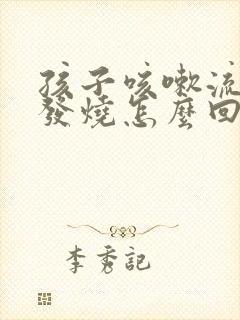 孩子咳嗽流
發燒怎麼回
李秀記